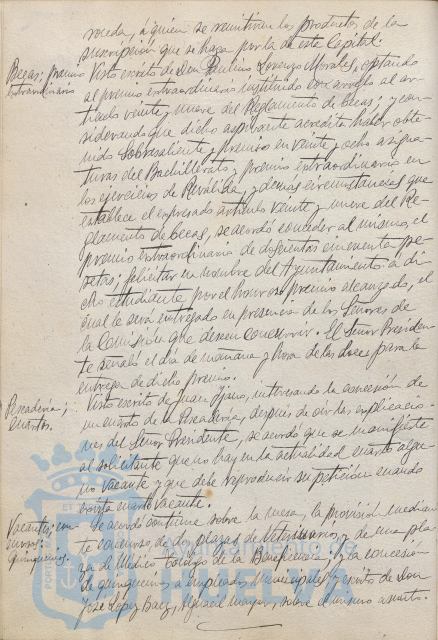 roceda, á quien se remitirán los productos de la
suscripción que se haga por la de esta Capital.
Becas; premio
extraordinario
Visto escrito de Don Paulino Lorenzo Morales, optando
al premio extraordinario instituido con arreglo al ar-
tículo veinte y nueve del Reglamento de becas; y con-
siderando que dicho aspirante acredita haber obte-
nido Sobresaliente y premios en veinte y ocho asigna-
turas del Bachillerato y premio extraordinario en
los ejercicios de Reválida, y demas circunstancias que
establece el expresado artículo veinte y nueve del Re-
glamento de becas, se acordó conceder al mismo, el
premio extraordinario de doscientas cincuenta pe-
setas; felicitar en nombre del Ayuntamiento a di-
cho estudiante por el honroso premio alcanzado, el
cual le será entregado en presencia de los Señores de
la Comisión que deseen concurrir. El Señor Presiden-
te señaló el día de mañana y hora de las doce para la
entrega de dicho premio.
Pescadería;
cuartos.
Visto escrito de Juan, interesando la concesión de
un cuarto de la Pescadería, después de oir las explicacio-
nes del Señor Presidente, se acordó que se manifieste
al solicitante que no hay en la actualidad cuarto algu-
no vacante y que debe reproducir su petición cuando
exista cuarto vacante.
Vacantes; con-
cursos;
quinquenios.
Se acordó continúe sobre la mesa, la provisión median-
te concurso de dos plazas de Veterinarios, y de una pla-
za de Médico Tocólogo de la Beneficencia; y la concesión
de quinquenios a empleados Municipales y escrito de Don
José López Baez, Alguacil mayor, sobre el mismo asunto.
Ayuntamiento de
HUELVA